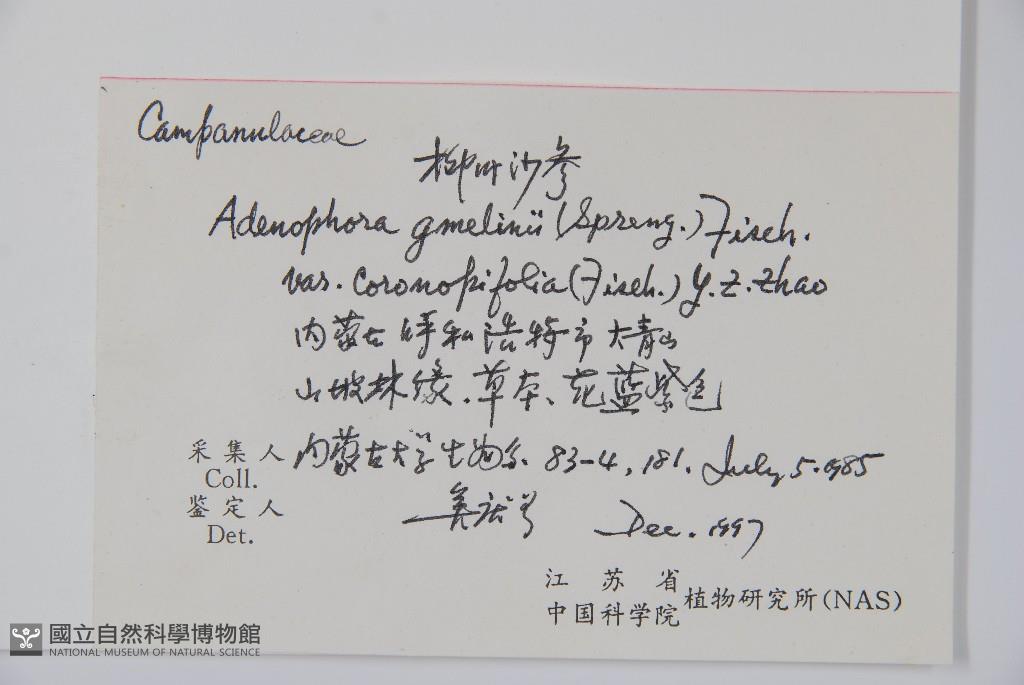 Campanulaceae
柳叶沙参
Adenophora gmelinii (Spreng.) Fisch.
var. coronopifolia (Fisch.) Y.Z.Zhao
内蒙古呼和浩特市大青山
山坡林缘、草本、花蓝紫色
采集人 内蒙古大学生物系 83-4, 181. July 5. 1985
Coll.
鉴定人 Dec. 1997
Det.
江苏省
中国科学院 植物研究所(NAS)
國立自然科學博物館
NATIONAL MUSEUM OF NATURAL SCIENCE